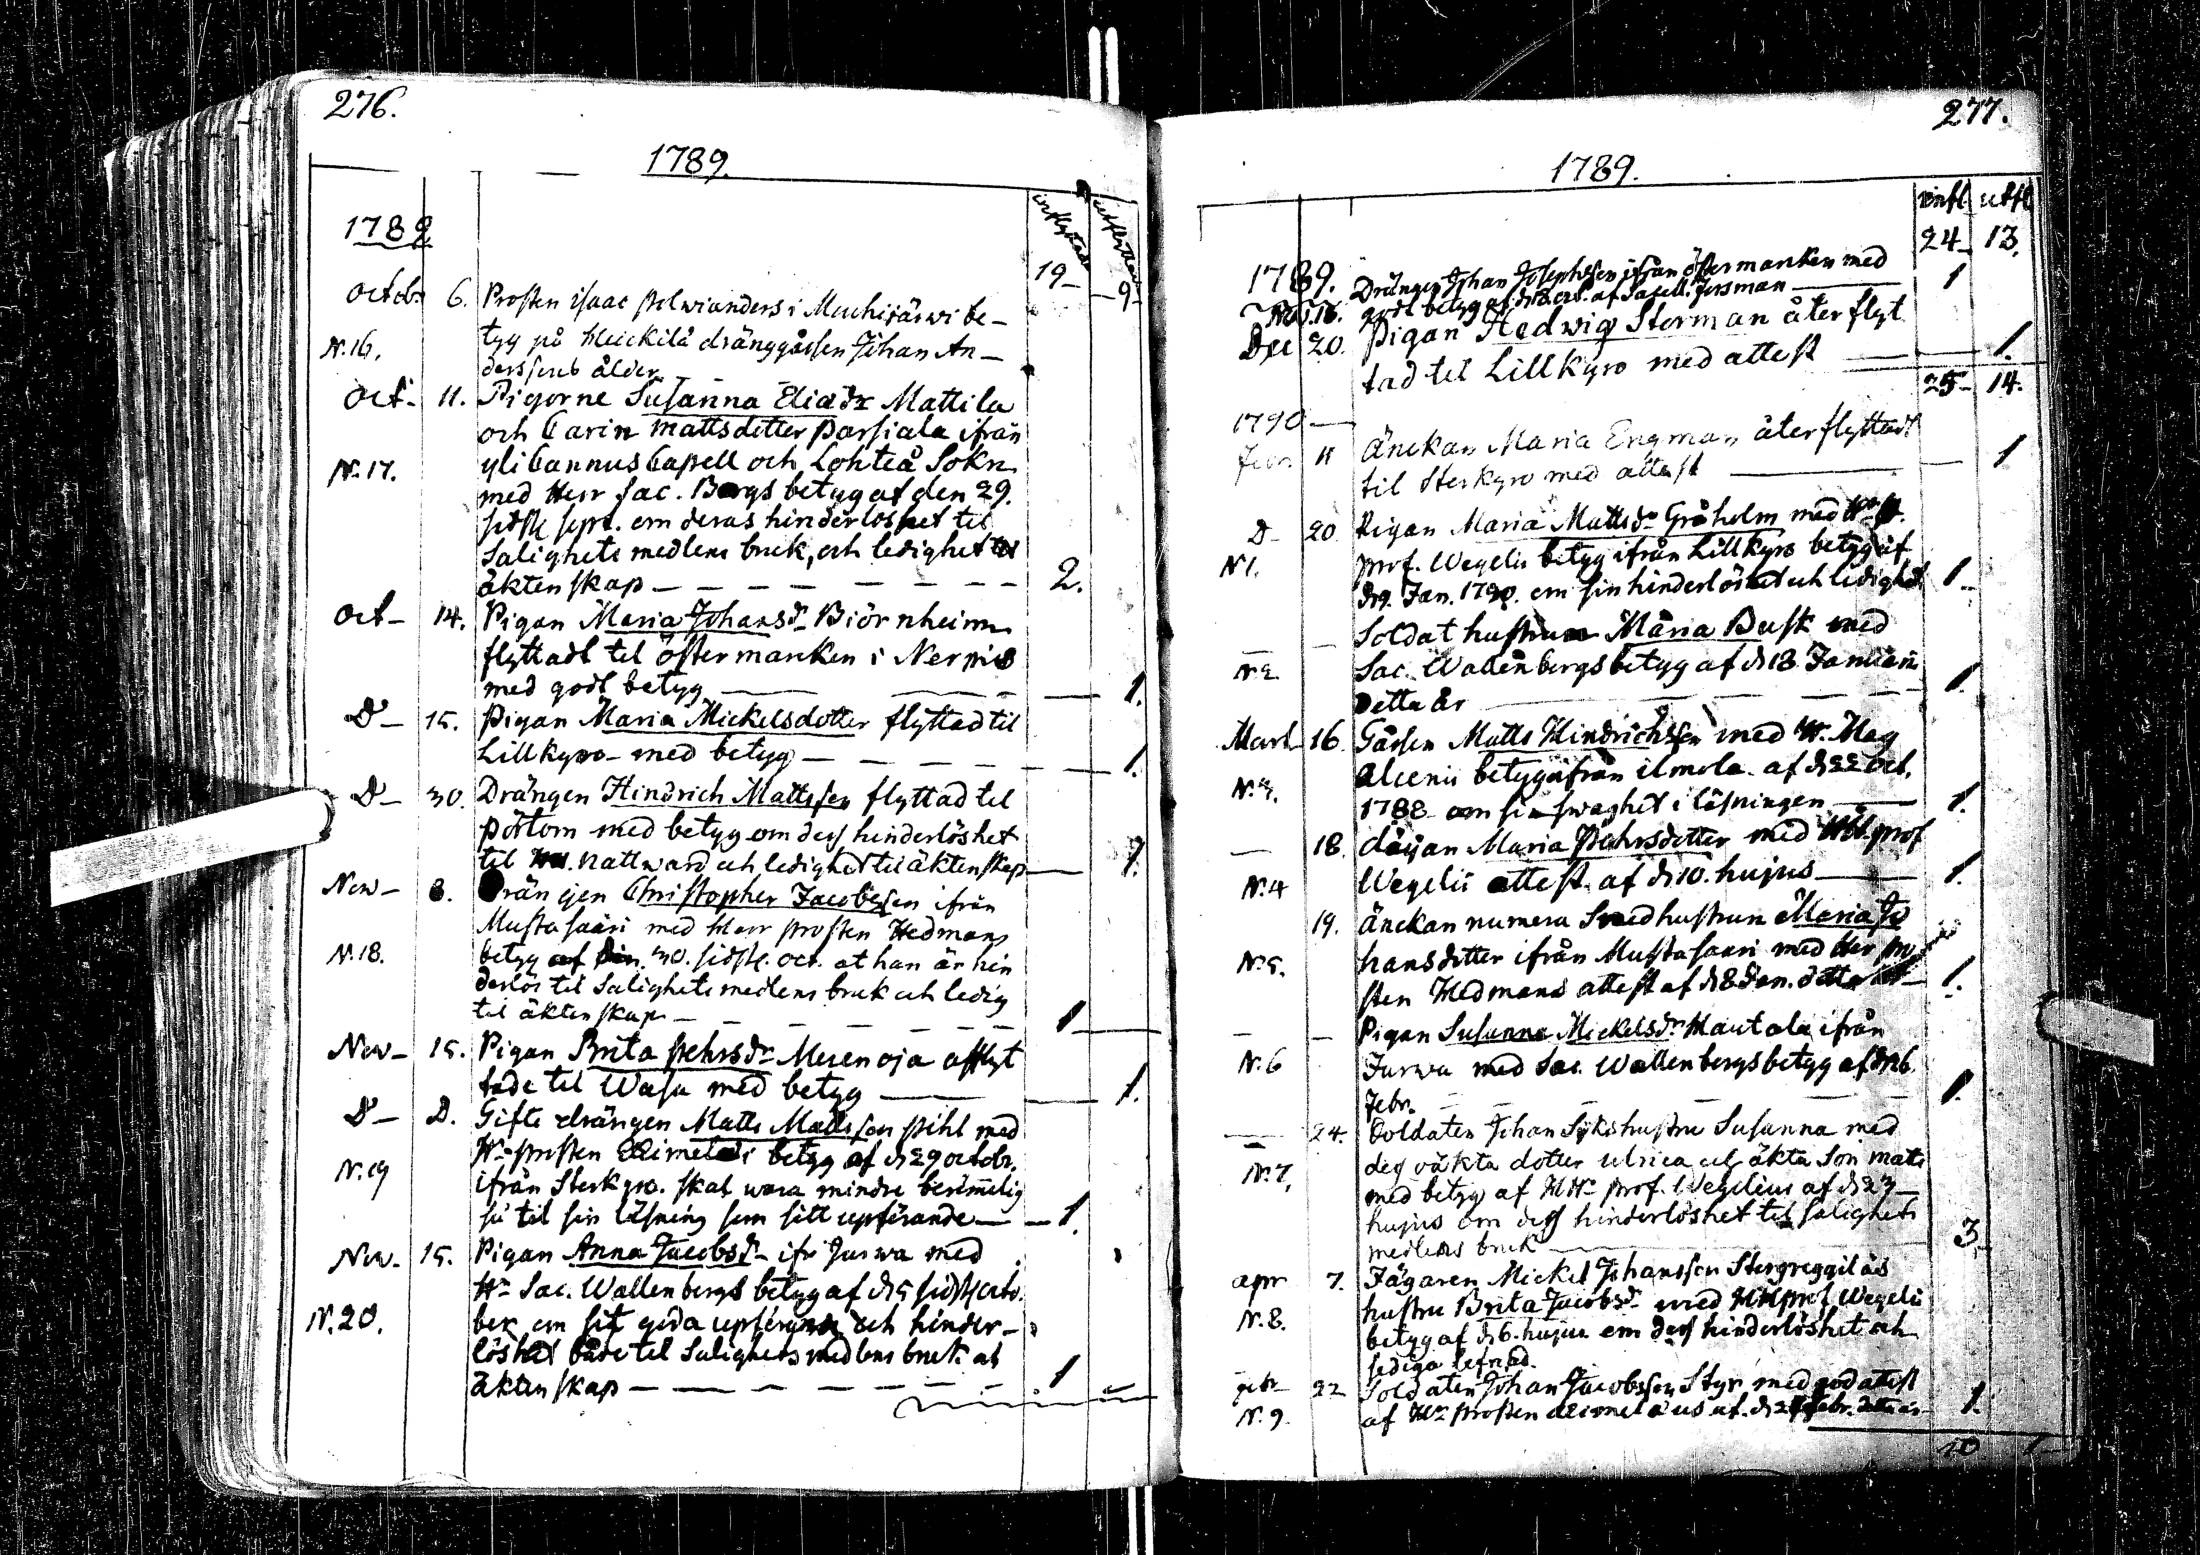 276.
1789.
inflyttade utflyttade
1789
19 - 9-
Octob. 6. Prosten isaac
tyg på Heickilä dränggåssen Johan An-
N.16.
derssens ålder
Oct. 11. Pigorne Susanna Eliædr Mattila
och Carin Mattsdotter Parsiala ifrån
N.17. ylicannus Capell och Lohteå Sokn
med Herr Sac. Bergs betyg af den 29.
sidstl. sept. om deras hinderlöshet til
Salighets medlens bruk, och ledighet til
äktenskap - - - - - - - 2.
Oct - 14. Pigan Maria Johansdr Biörnheim
flyttadt til östermarcken i Nerpis
med godt betyg - 1.
D - 15. Pigan Maria Mickelsdotter flyttad til
Lillkyro - med betyg - 1.
D - 30. Drängen Hindrich Mattssen flyttad til
Pörtom med betyg om dess hinderlöshet
til nattward och ledighet til äktenskap - 1.
Nov - 8. Drängen Christopher Jacobssen ifrån
Mustasaari med Herr prosten Hedmans
N.18. betyg af den 30. sidstl. oct. at han är hin
derlös til Salighets medlens bruk och ledig
til äktenskap - 1
Nov - 15. Pigan Brita Pehrsdr Merenoja afflyt
tade til Wasa med betyg - 1.
D - D. Gifte drängen Matts Mattssen Pihl med
Hr prosten betyg af d. 29 octobr.
N.19 ifrån Storkyro. skal wara mindre berömmelig
så til sin läsning som sitt upförande - 1.
Nov. 15. Pigan Anna Jacobsdr ifr Jurwa med
Hr Sac. Wallenbergs betyg af d. 5 sidstl. octo
N.20. ber om sit goda upförande och hinder-
löshet både til Salighets medlens bruk at
äktenskap - 1
277.
1789.
infl. utfl
24 - 13.
1789. Drängen Johan Josephssen ifrån östermarken med 1
Nov. 16. godt betyg af af Sacell. Forsman
Dec 20. Pigan Hedwig Storman återflyt
tad til Lillkyro med attest - 1.
25 - 14.
1790 -
Febr. 11 Änckan Maria Engman återflyttadt
til Storkyro med attest - 1
D - 20 Pigan Maria Mattsdr Gråholm med Hr
N1. prof. Wegelii betyg ifrån Lillkyro betyg af
d. 9. Jan. 1790. om sin hinderlöshet och ledighet 1
- Soldat hustrun Maria Busk med
N2. Sac. Wallenbergs betyg af d. 18 Januarii
detta år - 1.
Mart 16. Gåssen Matts Hindrichssen med Hr. Mag
Alcenii betyg ifrån ilmola af d. 22 oct.
N.3. 1788 om sin swaghet i läsningen - 1.
18. däijan Maria Pehrsdotter med prof
N.4 Wegelii attest af d. 10. hujus - 1.
19. Änckan numera Smedhustrun Maria Jo
N.5. hansdotter ifrån Mustasaari med Her pro
sten Hedmans attest af d. 8 Jan. detta år - 1.
- - Pigan Susanna Mickelsdr Hautala ifrån
N.6 Jurwa med Sac. Wallenbergs betyg af d.
febr. - 1.
- 24. Soldaten Johan Syks hustru Susanna med
N.7. dess oäkta dotter ulrica och äkta Son mats
med betyg af HHr prof. Wegelius af d. 23
hujus om dess hinderlöshet til salighets
medlens bruk - 3
apr 7. Jägaren Mickel Johanssen
hustru Brita Jacobsdr med HHr prof Wegelii
N.8. betyg af d. 6. hujus om dess hinderlöshet och
lediga lefnad.
febr 22 Soldaten Johan Jacobssen Styr med god attest
N.9. af Hr prosten af d. febr. detta år - 1.
10 1